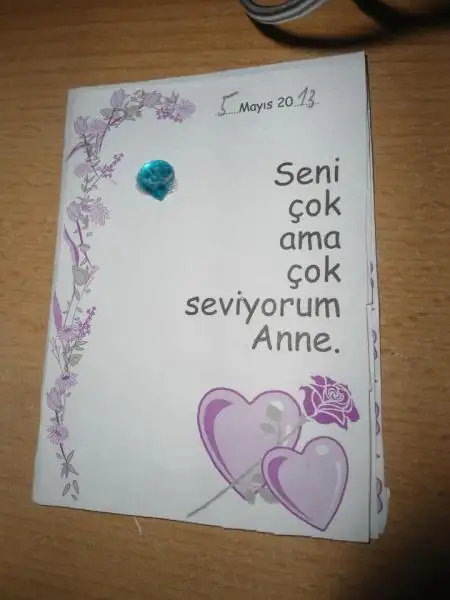 5 Mayıs 2013
Seni
çok
ama
çok
seviyorum
Anne.